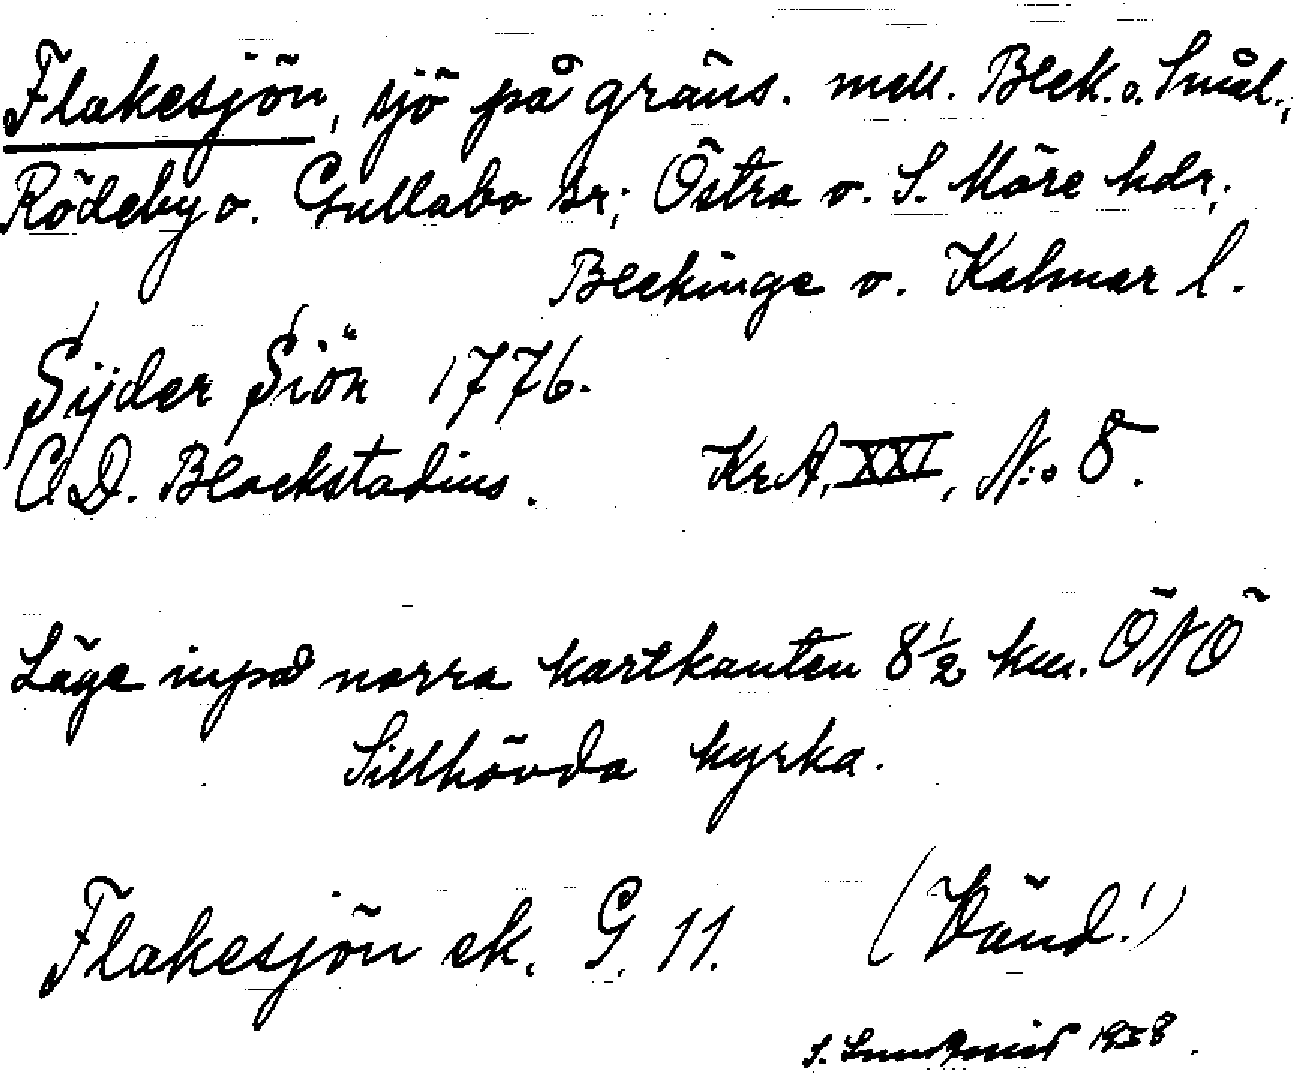 Flakesjön, sjö på gräns. mell. Blek. o. Smål.,
Rödeby o. Gullabo sr; Östra o. S. Möre hdr,
Blekinge o. Kalmar l.
Sijder Siön 1776.
C. D. Blackstadius. KrA, XXI, N:o 8.
Läge inpå norra kartkanten 8 1/2 km. ÖNÖ
Sillhövda kyrka.
Flakesjön ek. G. 11. (Vänd!)
S. 1958.